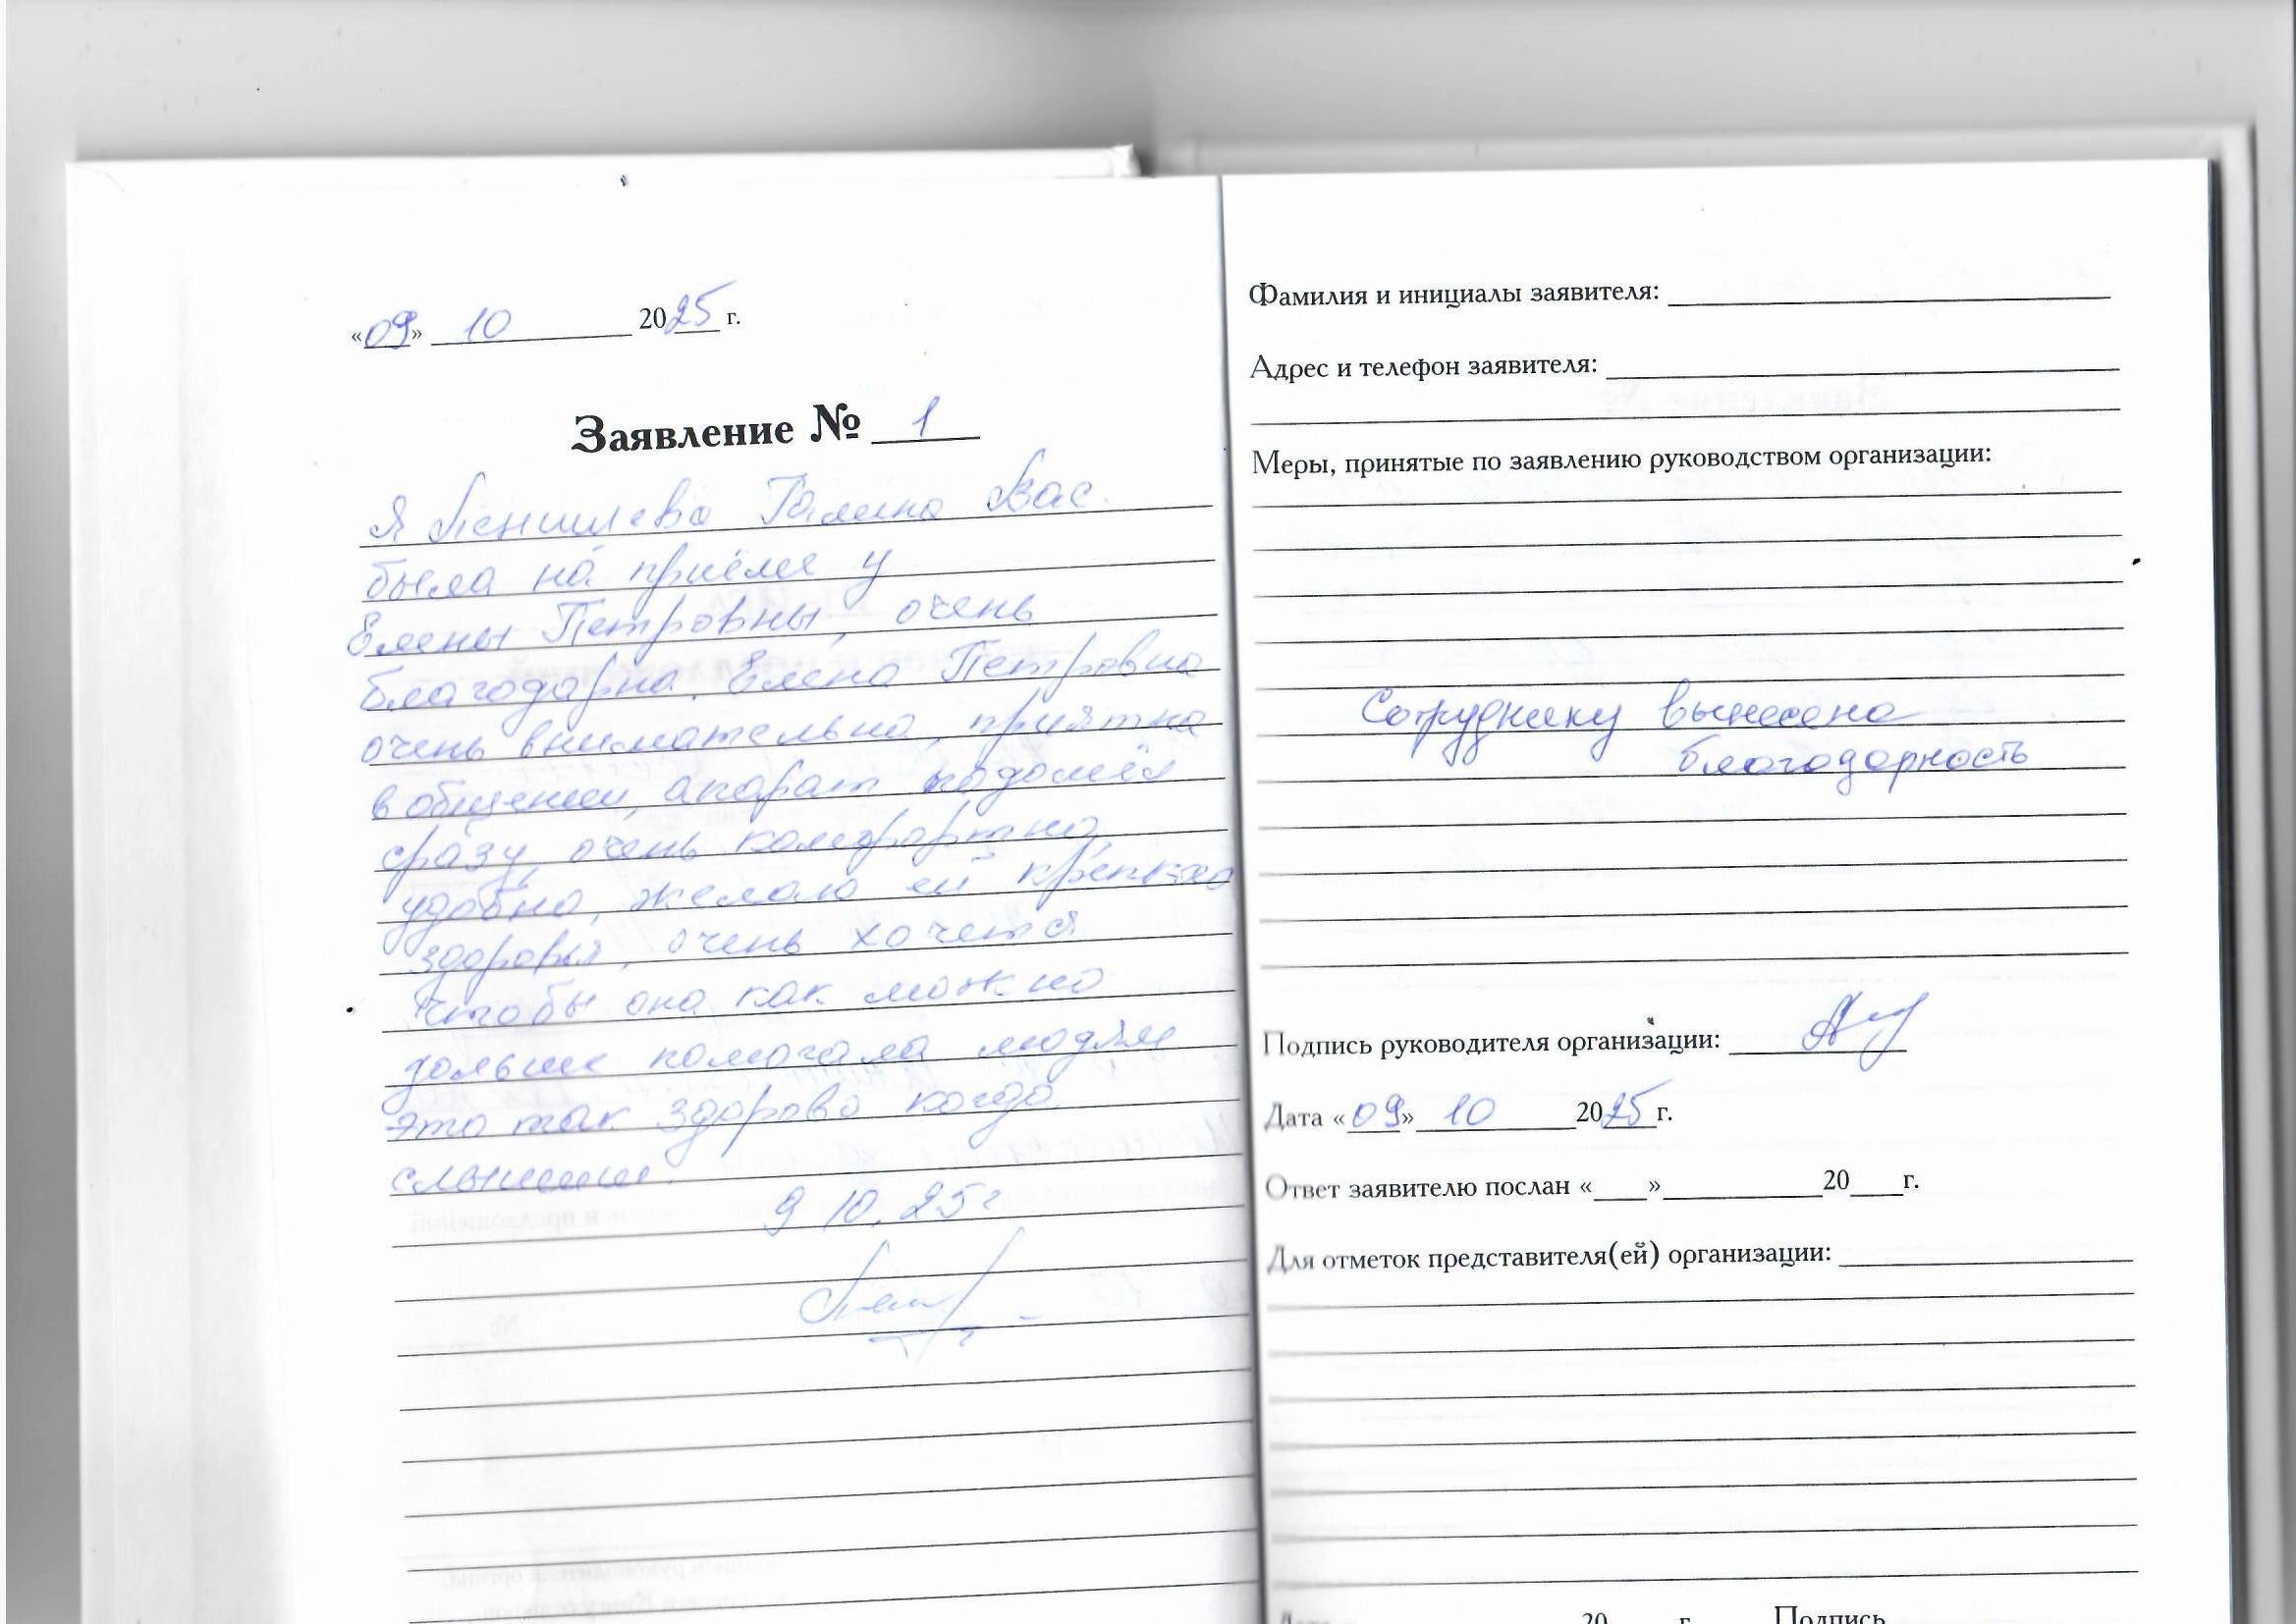 «09» 10 2025 г.
Заявление № 1
Я Галина Вас.
была на приёме у
Елены Петровны, очень
благодарна. Елена Петровна
очень внимательна, приятна
в общении, апарат подошёл
сразу, очень комфортно,
удобно, желаю ей крепкого
здоровья, очень хочется
чтобы она как можно
дольше помогала людям
это так здорово когда
слышиш.
9 10. 25 г
Фамилия и инициалы заявителя:
Адрес и телефон заявителя:
Меры, принятые по заявлению руководством организации:
Сотруднику вынесена
благодарность
Подпись руководителя организации:
Дата «09» 10 2025 г.
Ответ заявителю послан «    » 20    г.
Для отметок представителя(ей) организации:
20    г. Подпись